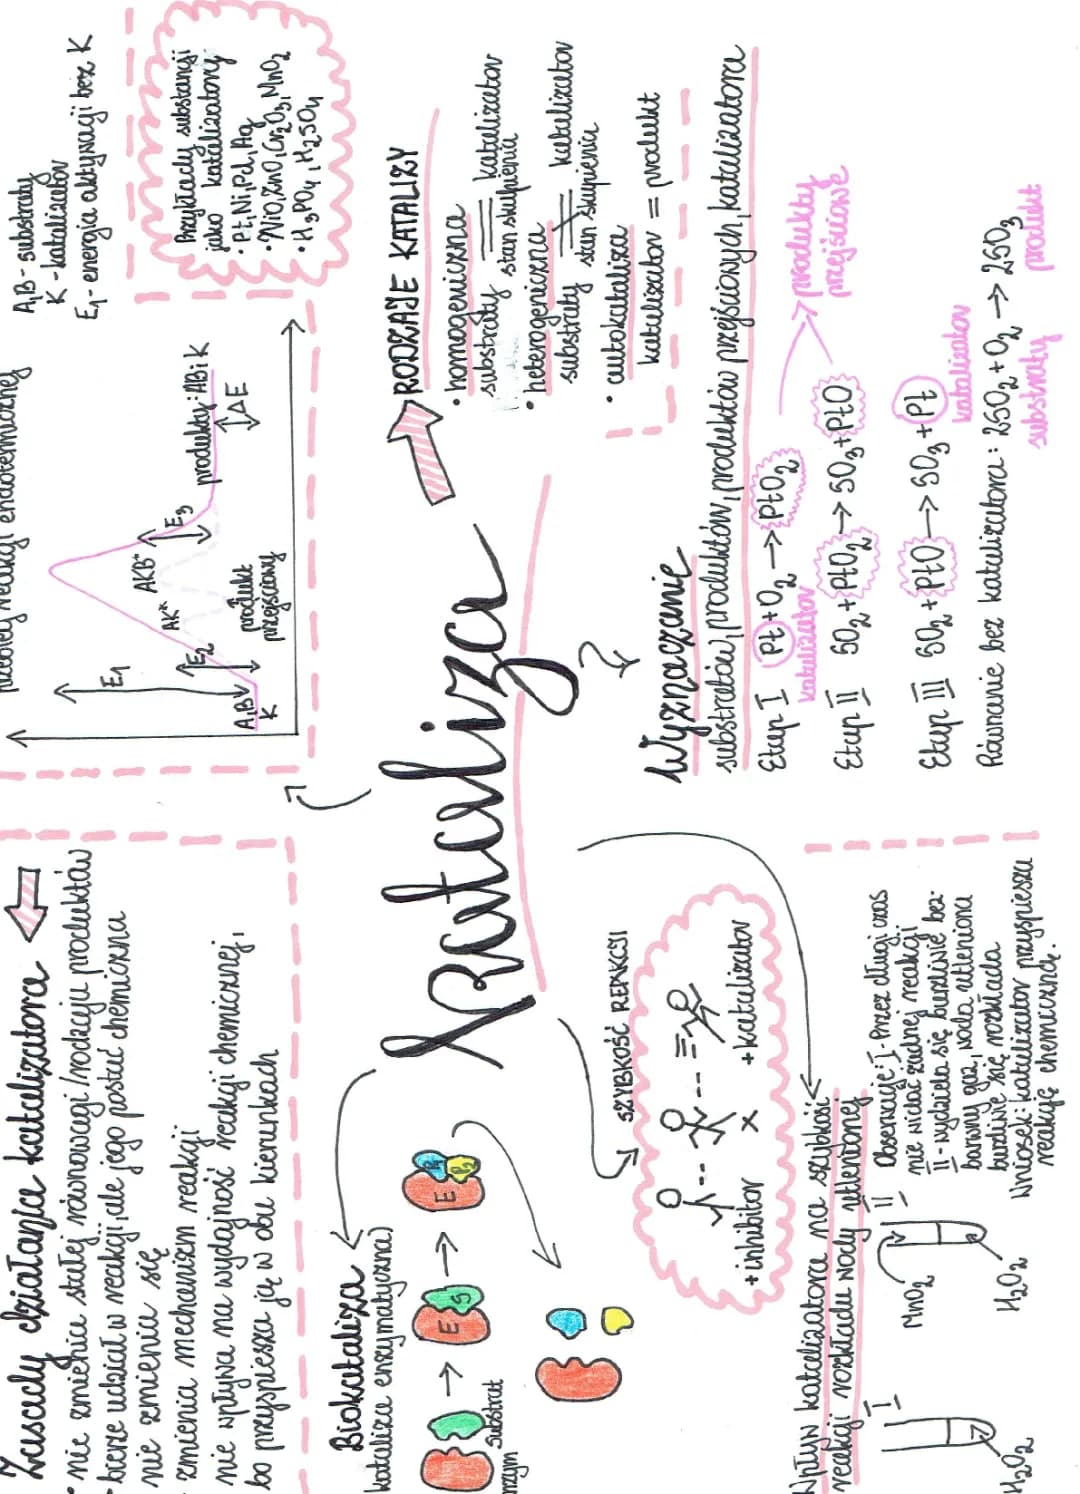 Zasady działania katalizatora
• nie zmienia stałej równowagi/rodzaju produktów
• bierze udział w reakcji, ale jego postać chemiczna
nie zmienia się
• zmienia mechanizm reakcji
nie wpływa na wydajność reakcji chemicznej,
bo przyspiesza ją w obu kierunkach
reakcji endotermicznej
E₁
A,B
K
E₂
AK*
AKB*
E₃
produkt
przejściowy
produkty: AB i K
ΔE
A,B - substraty
K - katalizator
E₁ - energia aktywacji bez K
Przykłady substancji
jako katalizatory
• Pt, Ni, Pd, Ag
• NiO, ZnO, Cr₂O₃, MnO₂
• H₃PO₄, H₂SO₄
Kataliza
Biokataliza
(kataliza enzymatyczna)
E
S
E
P₁
P₂
substrat
SZYBKOŚĆ REAKCJI
+inhibitor
x
+katalizator
RODZAJE KATALIZY
• homogeniczna
substraty = katalizator
stan skupienia
• heterogeniczna
substraty ≠ katalizator
stan skupienia
• autokataliza
katalizator = produkt
Wyznaczanie
substratów, produktów, produktów przejściowych, katalizatora
Etap I Pt + O₂ → PtO₂
katalizator
produkty
przejściowe
Etap II SO₂ + PtO₂ → SO₃ + PtO
Etap III SO₂ + PtO → SO₃ + Pt
katalizator
Równanie bez katalizatora: 2SO₂ + O₂ → 2SO₃
substraty
produkt
Wpływ katalizatora na szybkość
reakcji rozkładu wody utlenionej
I
H₂O₂
II
MnO₂
H₂O₂
Obserwacje: I - Przez długi czas
nie widać żadnej reakcji
II - wydziela się burzliwie bez-
barwny gaz, woda utleniona
burzliwie się rozkłada
Wniosek: katalizator przyspiesza
reakcję chemiczną.